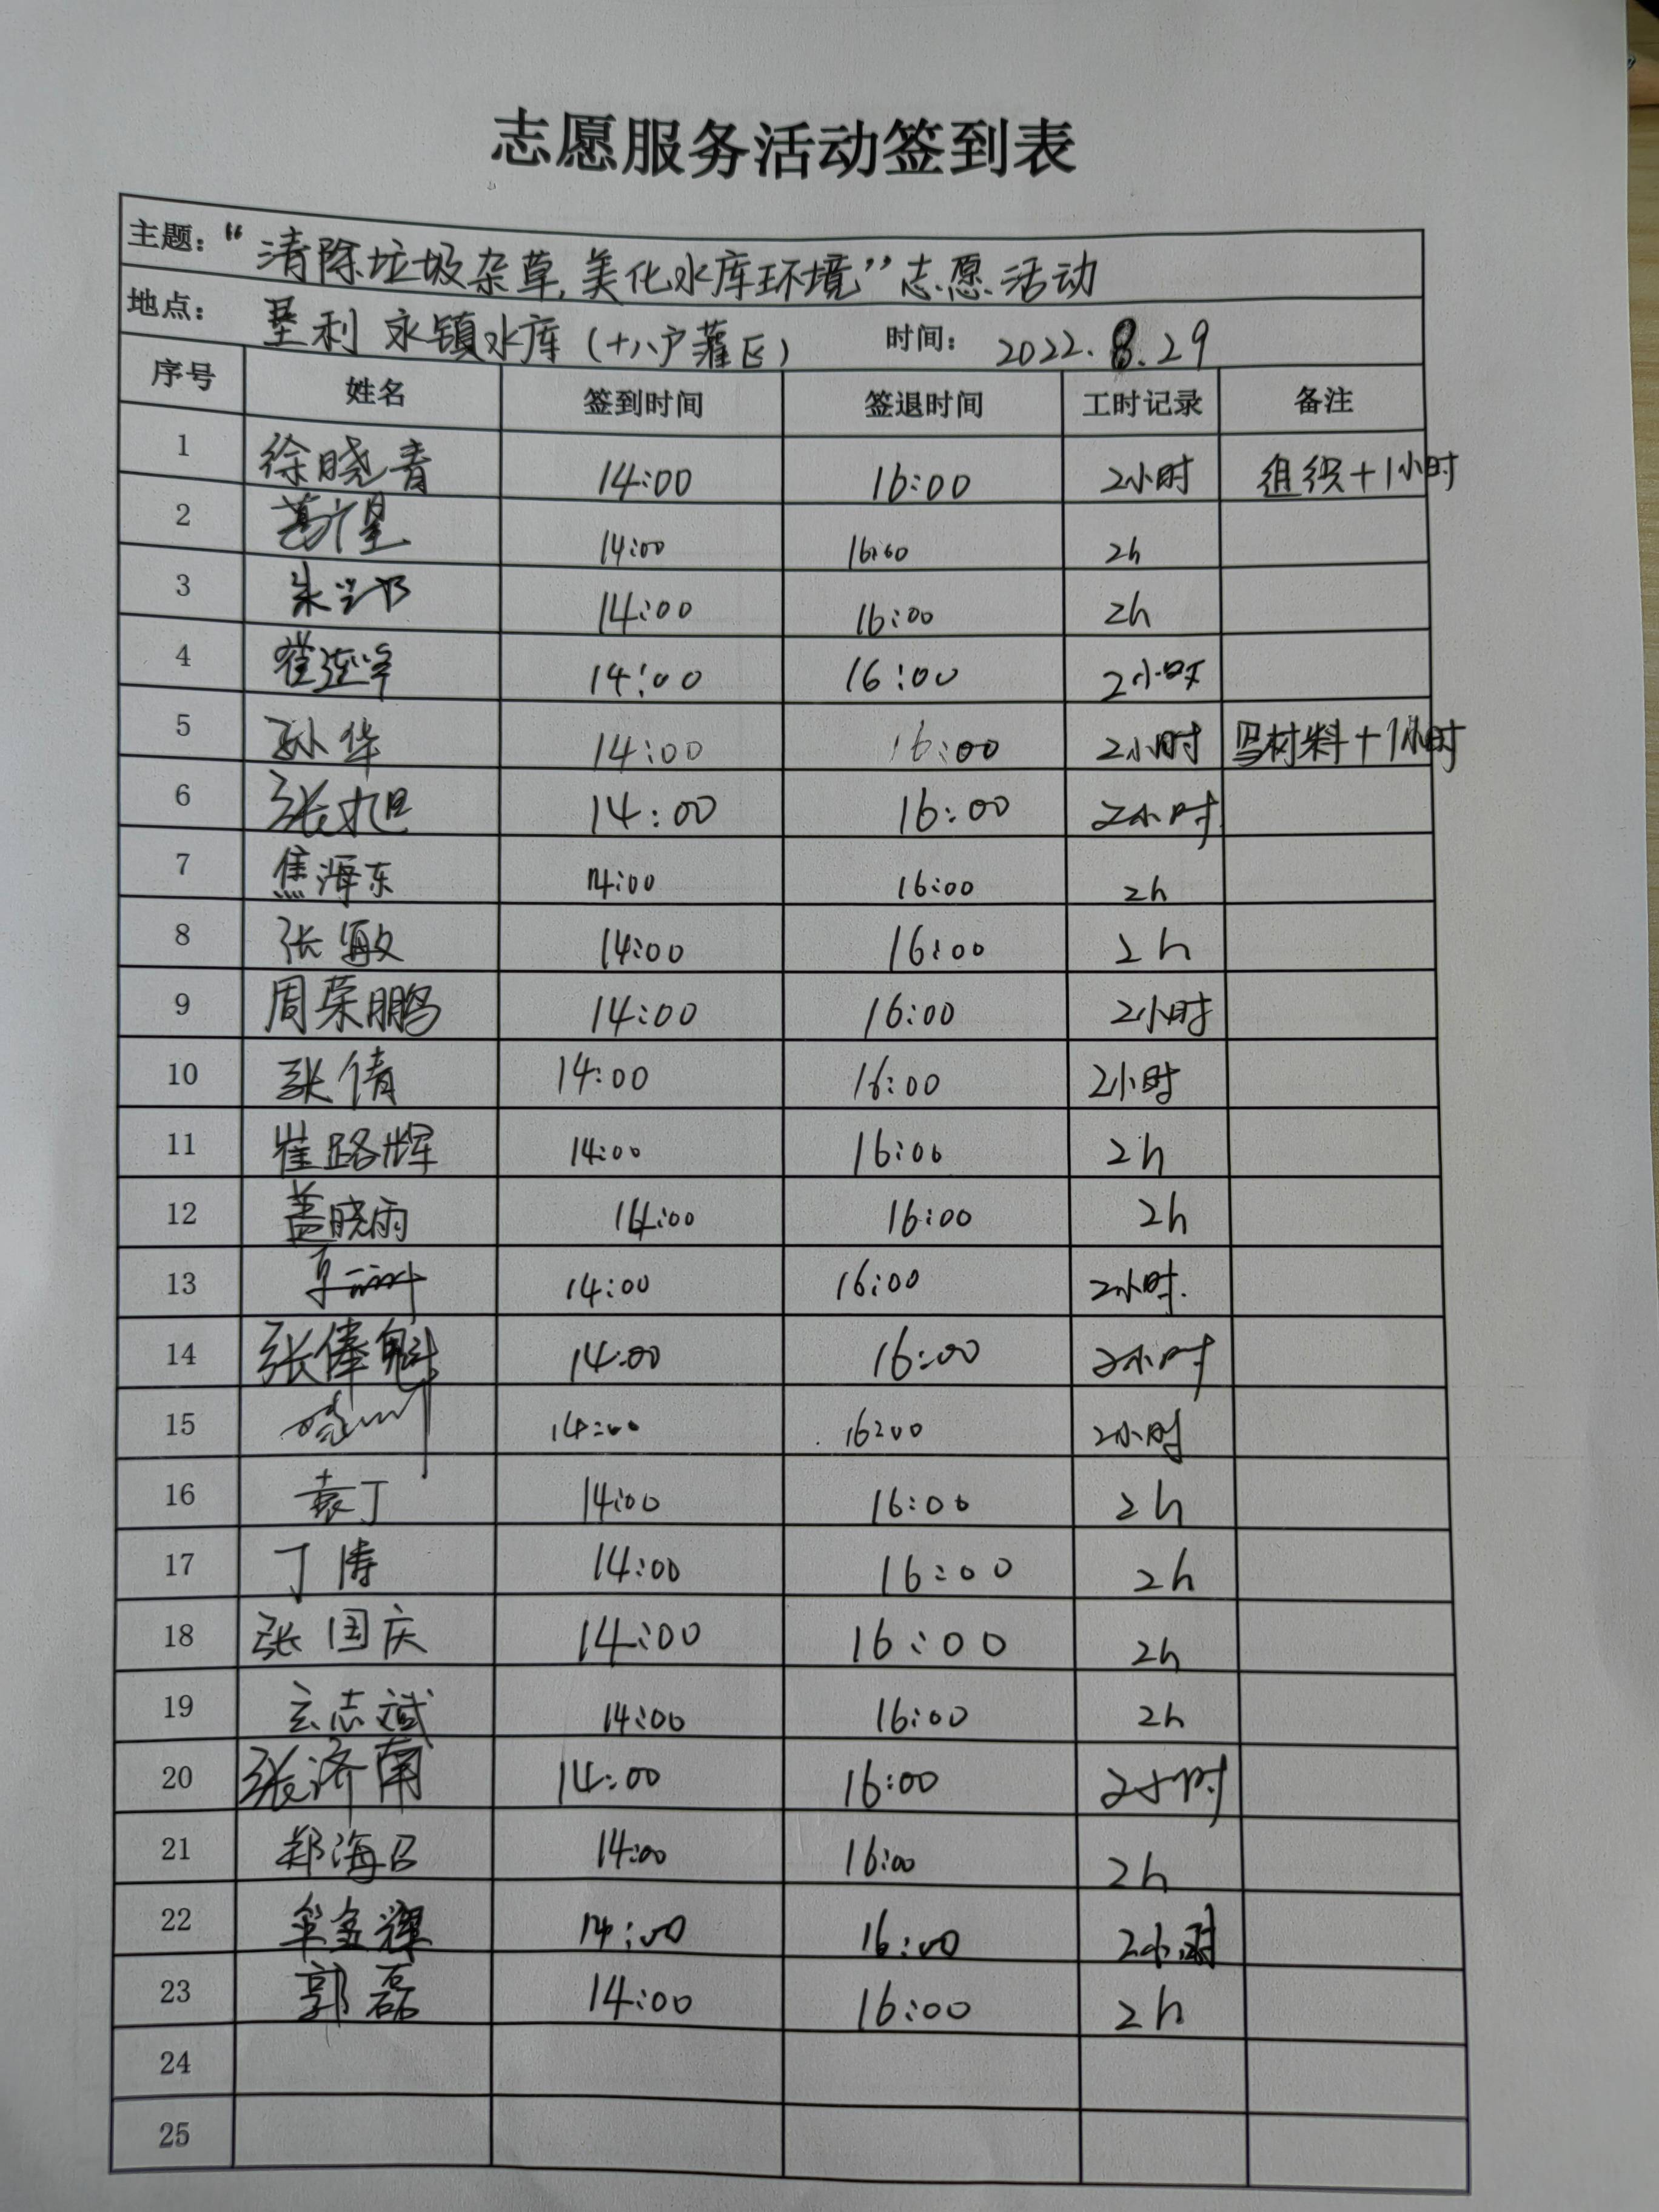 志愿服务活动签到表
主题：“清除垃圾杂草,美化水库环境”志愿活动
地点： 垦利永镇水库(十八户灌区) 时间： 2022.8.29
序号 姓名 签到时间 签退时间 工时记录 备注
1 徐晓青 14:00 16:00 2小时 组织+1小时
2 14:00 16:00 2h
3 14:00 16:00 2h
4 14:00 16:00 2小时
5 孙华 14:00 16:00 2小时 写材料+1小时
6 张旭 14:00 16:00 2小时
7 焦海东 14:00 16:00 2h
8 张敏 14:00 16:00 2h
9 周荣鹏 14:00 16:00 2小时
10 张倩 14:00 16:00 2小时
11 崔路辉 14:00 16:00 2h
12 盖晓雨 14:00 16:00 2h
13 14:00 16:00 2小时.
14 张俸魁 14:00 16:00 2小时
15 14:00 16:00 2小时
16 袁丁 14:00 16:00 2h
17 丁涛 14:00 16:00 2h
18 张国庆 14:00 16:00 2h
19 玄志斌 14:00 16:00 2h
20 张济南 14:00 16:00 2小时
21 郑海 14:00 16:00 2h
22 14:00 16:00 2小时
23 郭磊 14:00 16:00 2h
24
25